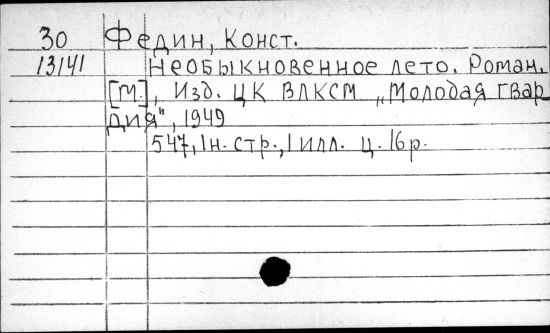 30 Федин, Конст.
13141 Необыкновенное лето. Роман.
[М.], Изд. ЦК ВЛКСМ „Молодая гвар-
дия", 1949
547, 1н. стр., 1 илл. ц. 16 р.